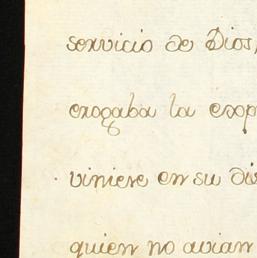 servicio de Dios,
erogaba la
viniese en su
quien no avian